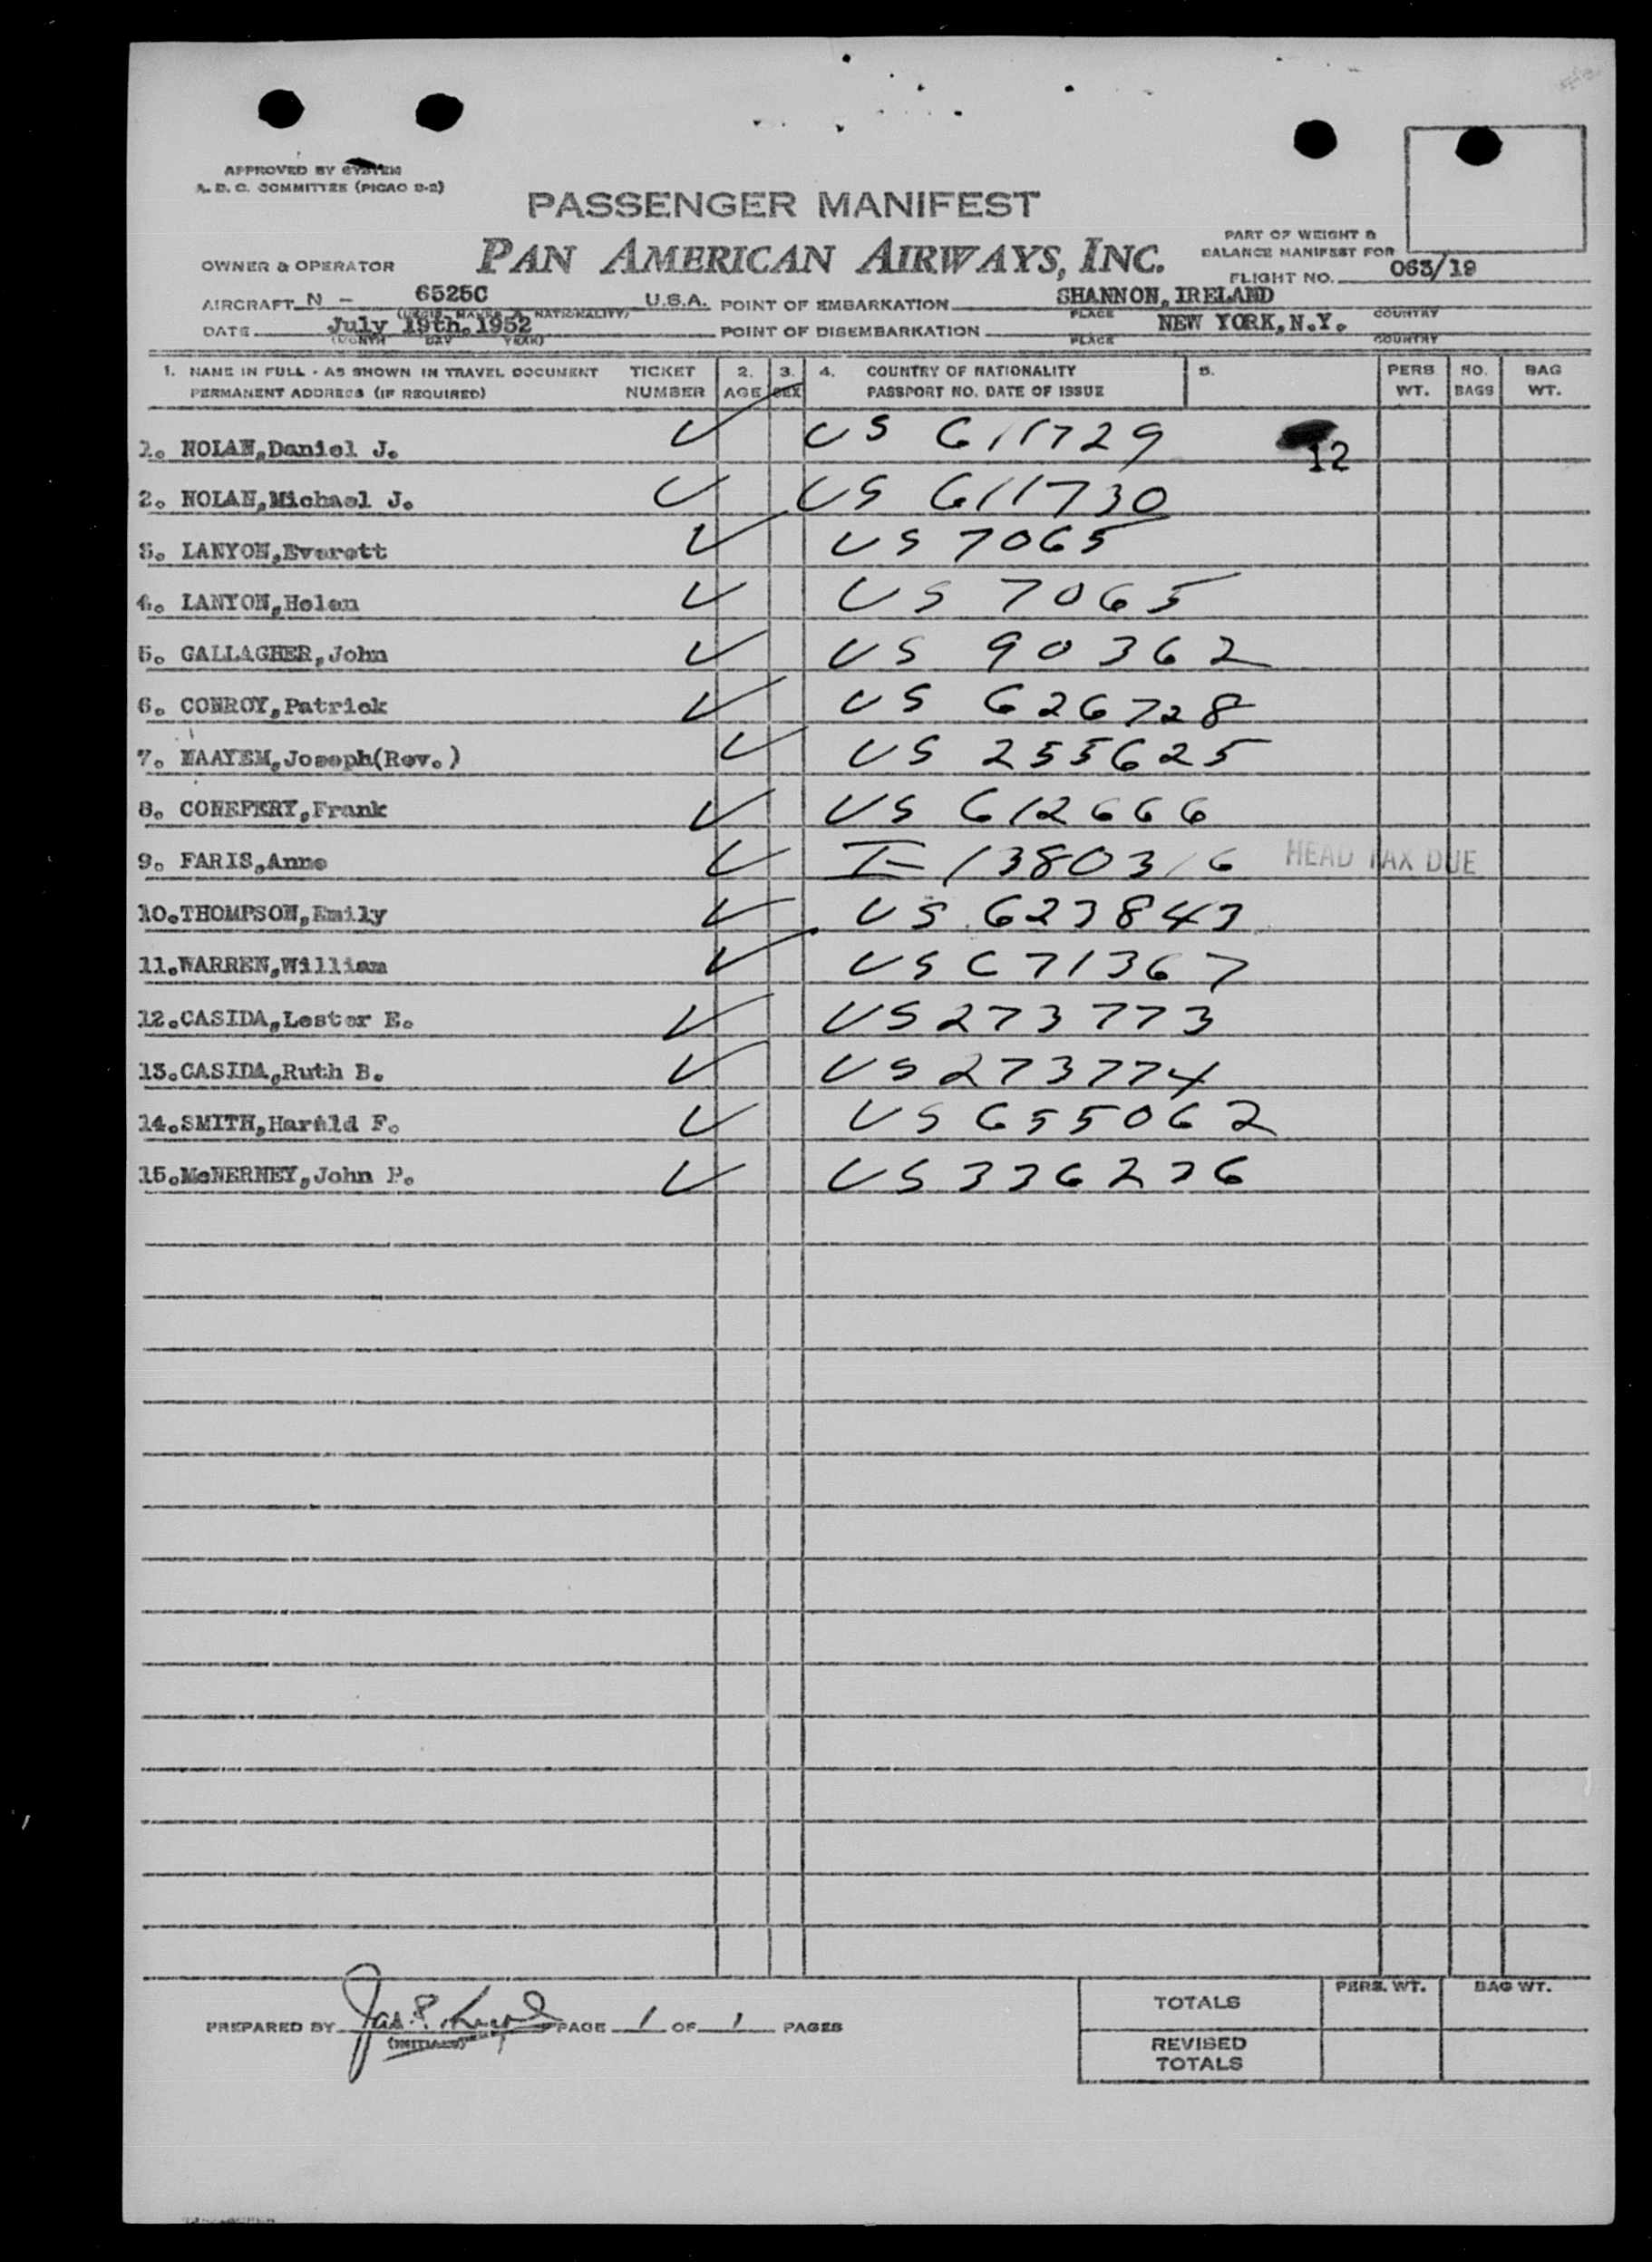 APPROVED BY SYSTEM
A. D. C. COMMITTEE (PICAO D-2)
PASSENGER MANIFEST
OWNER & OPERATOR PAN AMERICAN AIRWAYS, INC.
PART OF WEIGHT & BALANCE MANIFEST FOR
FLIGHT NO. 063/19
AIRCRAFT N - 6525C U.S.A. POINT OF EMBARKATION SHANNON, IRELAND
PLACE COUNTRY
DATE July 19th, 1952 POINT OF DISEMBARKATION NEW YORK, N.Y.
(MONTH DAY YEAR) PLACE COUNTRY
1. NAME IN FULL - AS SHOWN IN TRAVEL DOCUMENT TICKET 2. 3. 4. COUNTRY OF NATIONALITY 5. PERS NO. BAG
PERMANENT ADDRESS (IF REQUIRED) NUMBER AGE SEX PASSPORT NO. DATE OF ISSUE WT. BAGS WT.
1. NOLAN, Daniel J. ✓ US 611729 12
2. NOLAN, Michael J. ✓ US 611730
3. LANYON, Everett ✓ US 7065
4. LANYON, Helen ✓ US 7065
5. GALLAGHER, John ✓ US 90362
6. CONROY, Patrick ✓ US 626728
7. NAAYEM, Joseph(Rev.) ✓ US 255625
8. CONEFERY, Frank ✓ US 612666
9. FARIS, Anne ✓ I-1380316 HEAD TAX DUE
10. THOMPSON, Emily ✓ US 623843
11. WARREN, William ✓ US 671367
12. CASIDA, Lester E. ✓ US 273773
13. CASIDA, Ruth B. ✓ US 273774
14. SMITH, Harald F. ✓ US 655062
15. McNERNEY, John P. ✓ US 336236
PREPARED BY Jas. P. (INITIALS) PAGE 1 OF 1 PAGES
TOTALS PERS. WT. BAG WT.
REVISED TOTALS